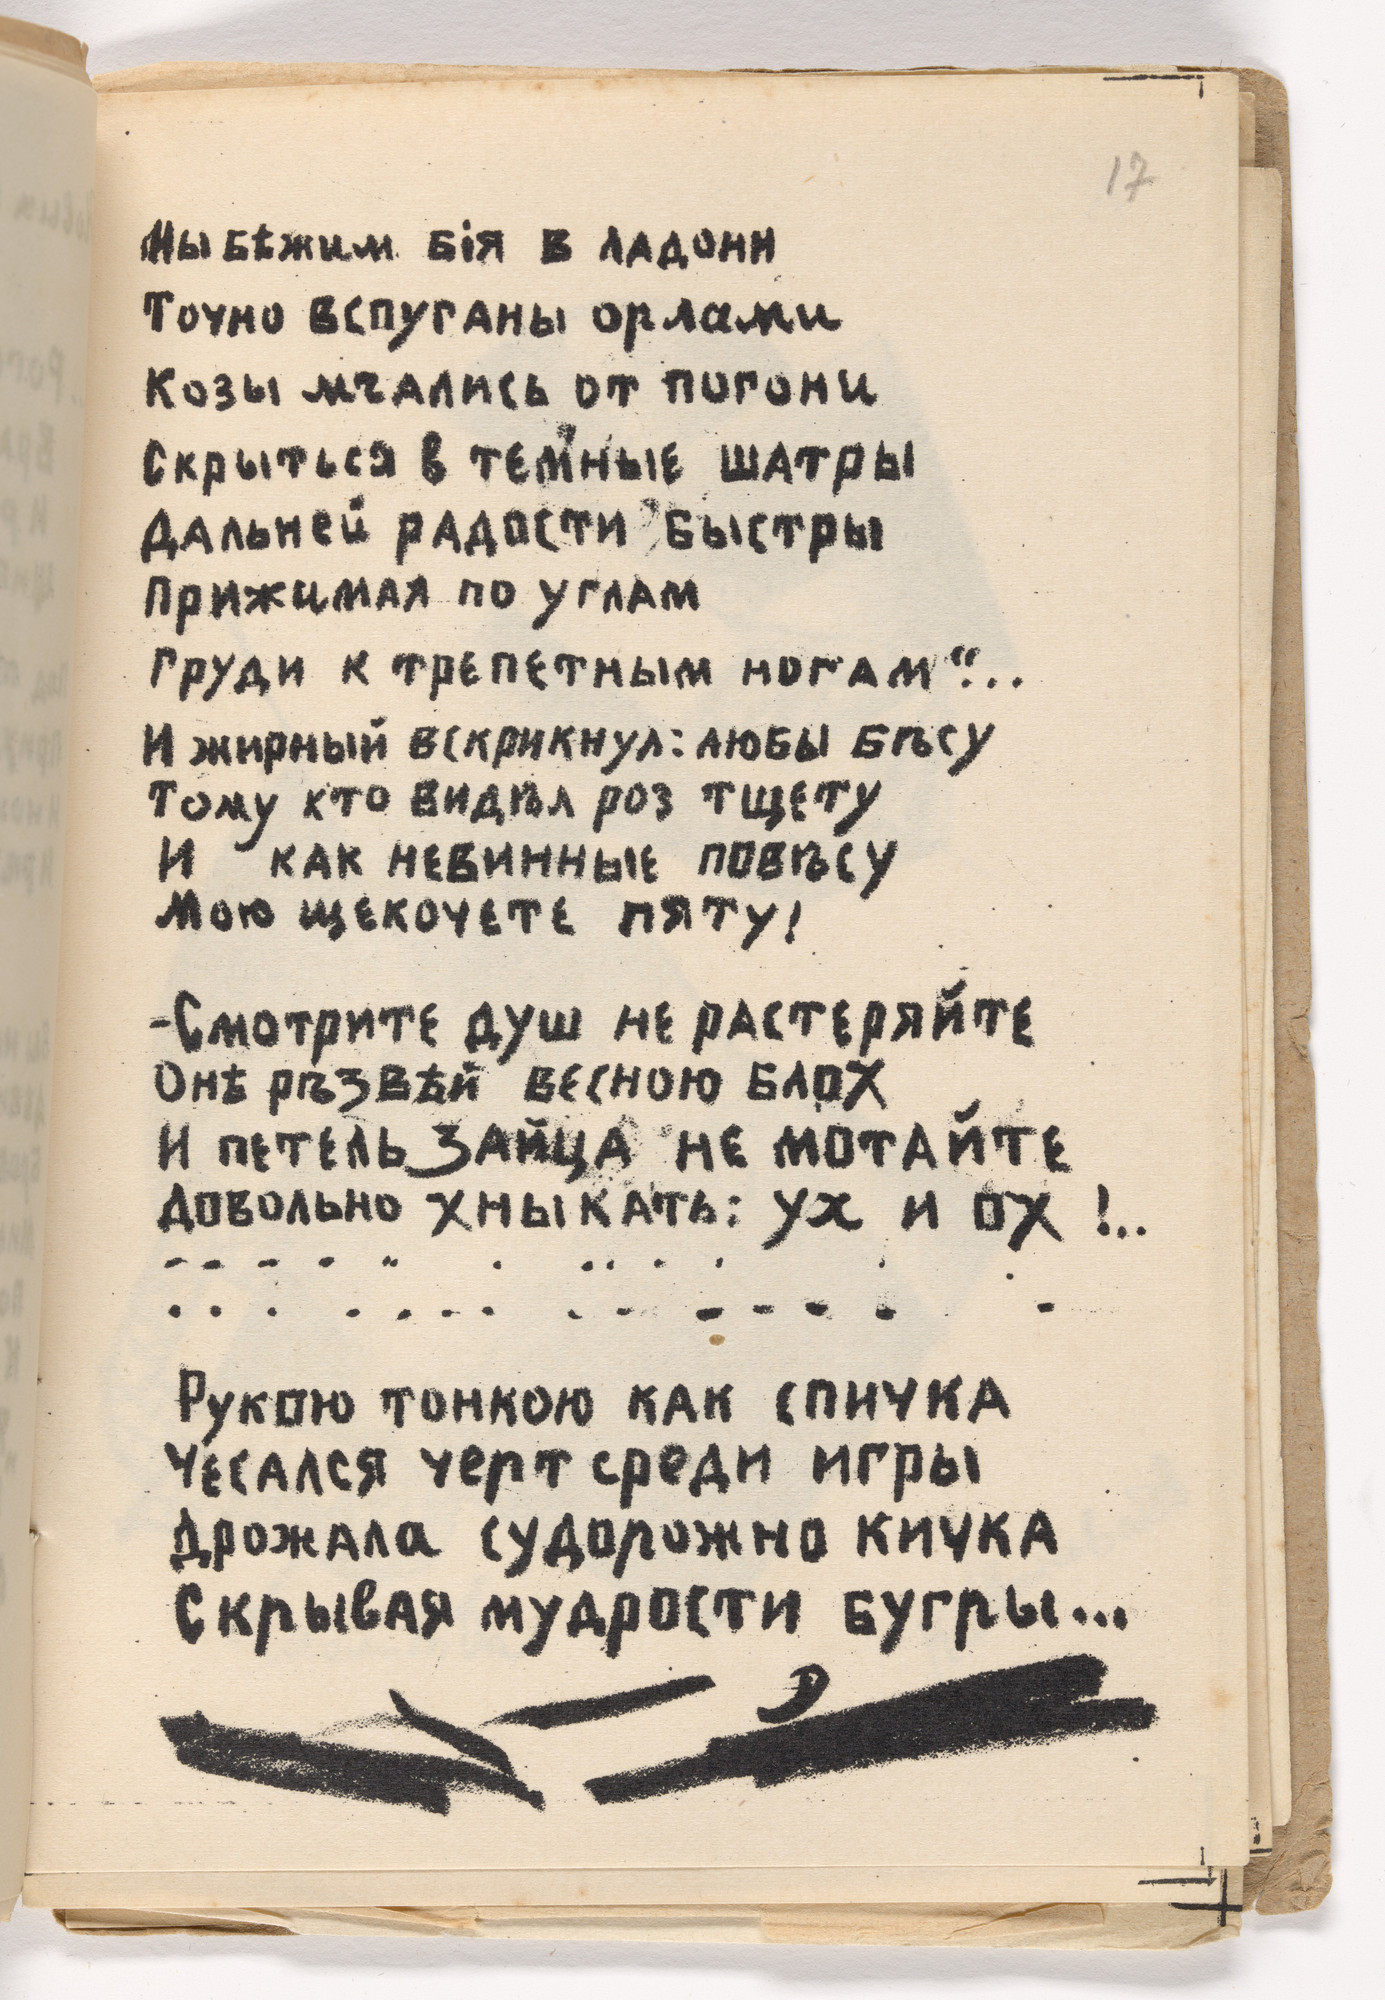 17
Мы бѣжим бія в ладони
Точно вспуганы орлами
Козы мчались от погони
Скрыться в темные шатры
Дальней радости быстры
Прижимая по углам
Груди к трепетным ногам“...
И жирный вскрикнул: любы бѣсу
Тому кто видѣл роз тщету
И как невинные повѣсу
Мою щекочете пяту!
-Смотрите душ не растеряйте
Онѣ рѣзвѣй весною блох
И петель зайца не мотайте
Довольно хныкать: ух и ох!..
Рукою тонкою как спичка
Чесался черт среди игры
Дрожала судорожно кичка
Скрывая мудрости бугры...